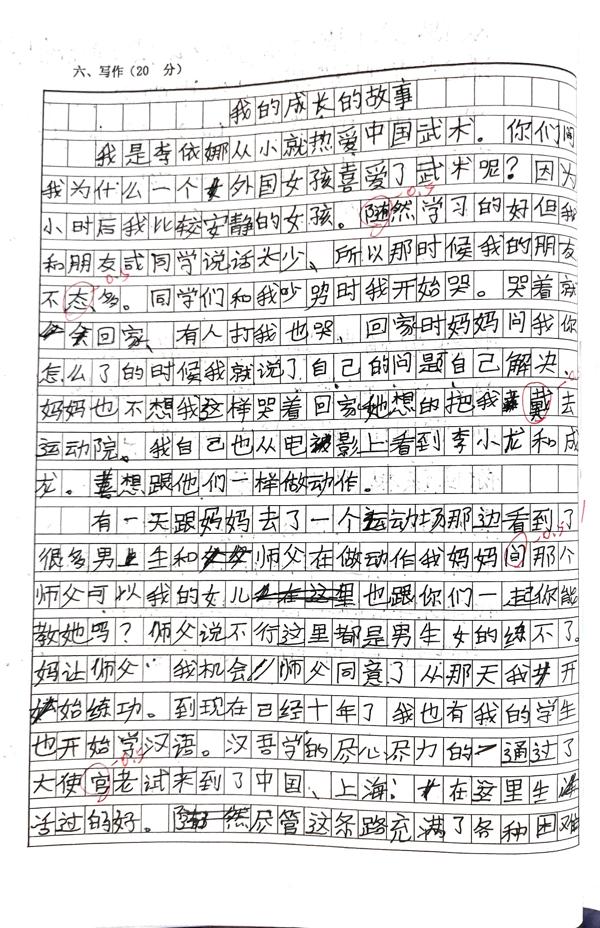 六、写作(20 分)
我的成长的故事
我是李依娜从小就热爱中国武术。你们问
我为什么一个外国女孩喜爱了武术呢？因为
小时后我比较安静的女孩。随然学习的好但我 -0.5
和朋友或同学说话太少、所以那时候我的朋友
不态多。同学们和我吵努时我开始哭。哭着就 -0.5
回家、有人打我也哭、回家时妈妈问我你
怎么了的时候我就说了自己的问题自己解决.
妈妈也不想我这样哭着回家她想的把我戴去
运动院。我自己也从电影上看到李小龙和成
龙。想跟他们一样做动作.
有一天跟妈妈去了一个运动场那边看到了
很多男生和师父在做动作我妈妈间那个 -0.5
师父可以我的女儿也跟你们一起你能
教她吗？师父说不行这里都是男生女的练不了。
妈让师父 我机会师父同意了从那天我开
始练功。到现在已经十年了我也有我的学生
也开始学汉语。汉语学的尽心尽力的 通过了
大使宫考试来到了中国、上海！在这里生 -0.5
活过的好。尽管这条路充满了各种困难